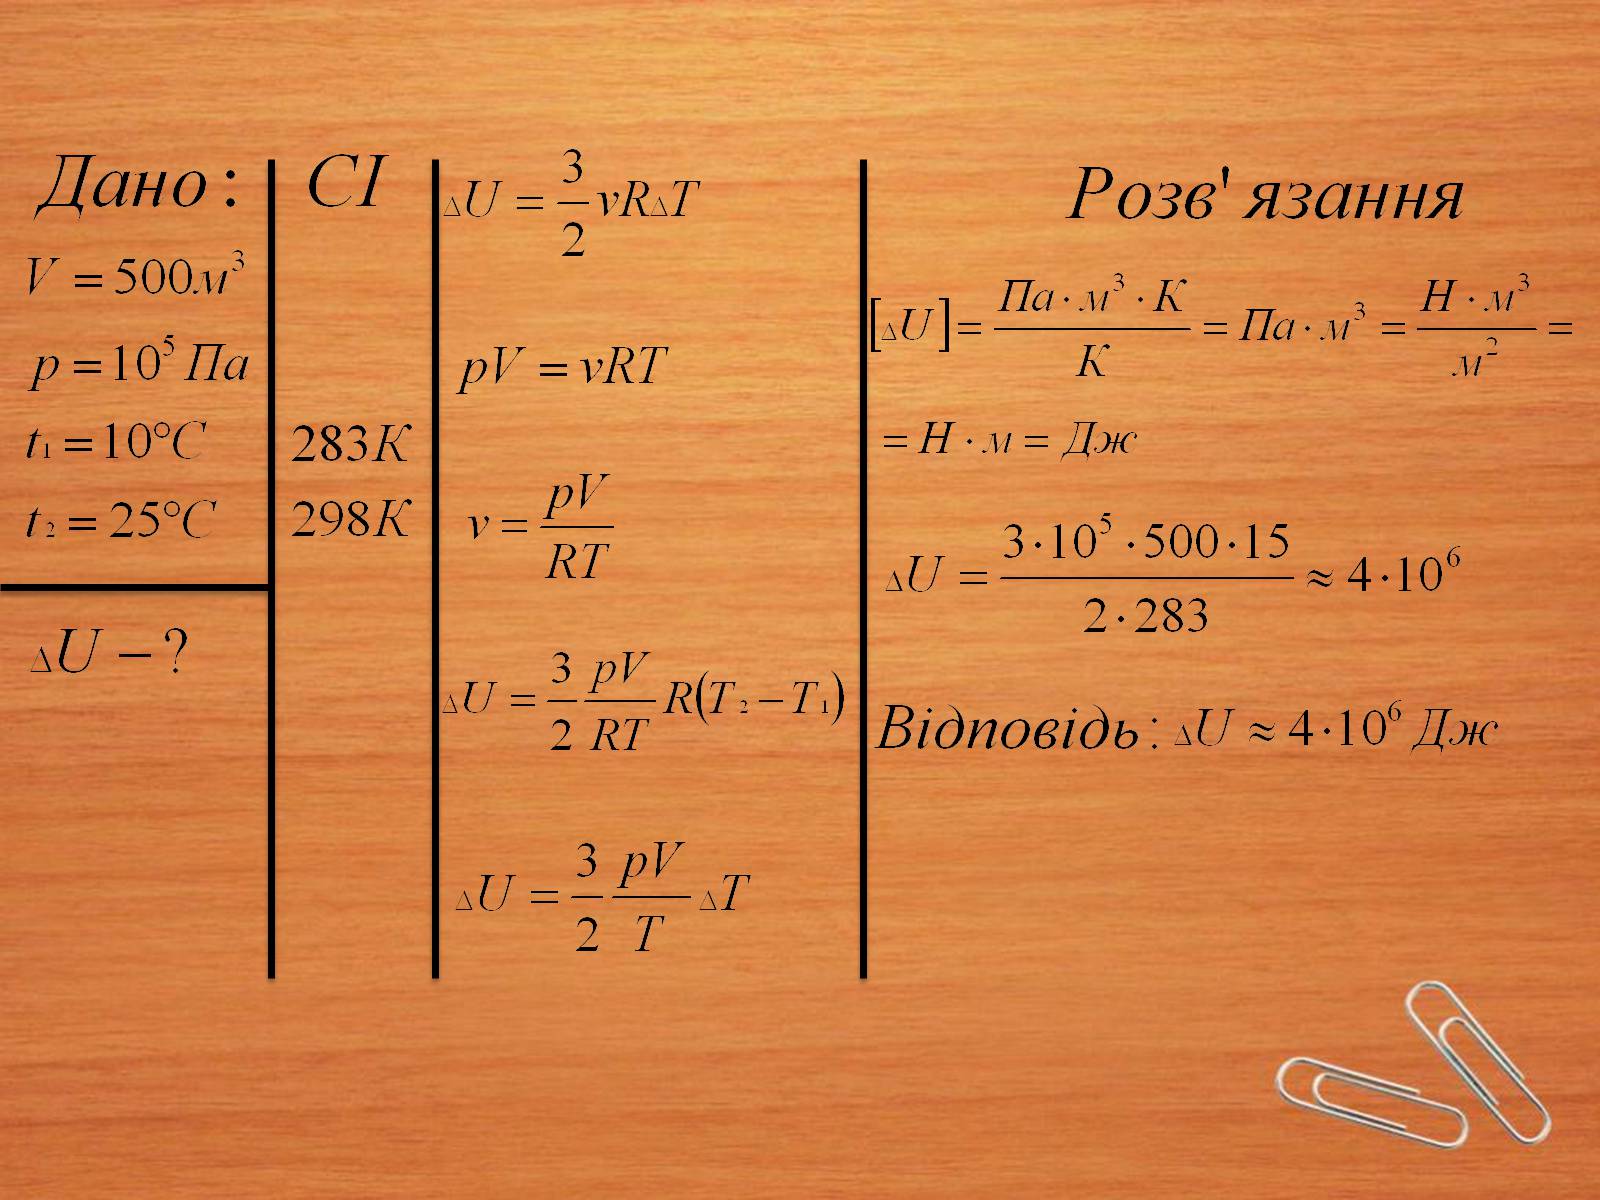 Дано:
V = 500м³
p = 10⁵ Па
t₁ = 10°C
t₂ = 25°C
ΔU − ?
СІ
283К
298К
ΔU = 3/2 νRΔT
pV = νRT
ν = pV/RT
ΔU = 3/2 pV/RT R(T₂ − T₁)
ΔU = 3/2 pV/T ΔT
Розв'язання
[ΔU] = Па·м³·К/К = Па·м³ = Н·м³/м² =
= Н·м = Дж
ΔU = 3·10⁵·500·15/2·283 ≈ 4·10⁶
Відповідь: ΔU ≈ 4·10⁶ Дж